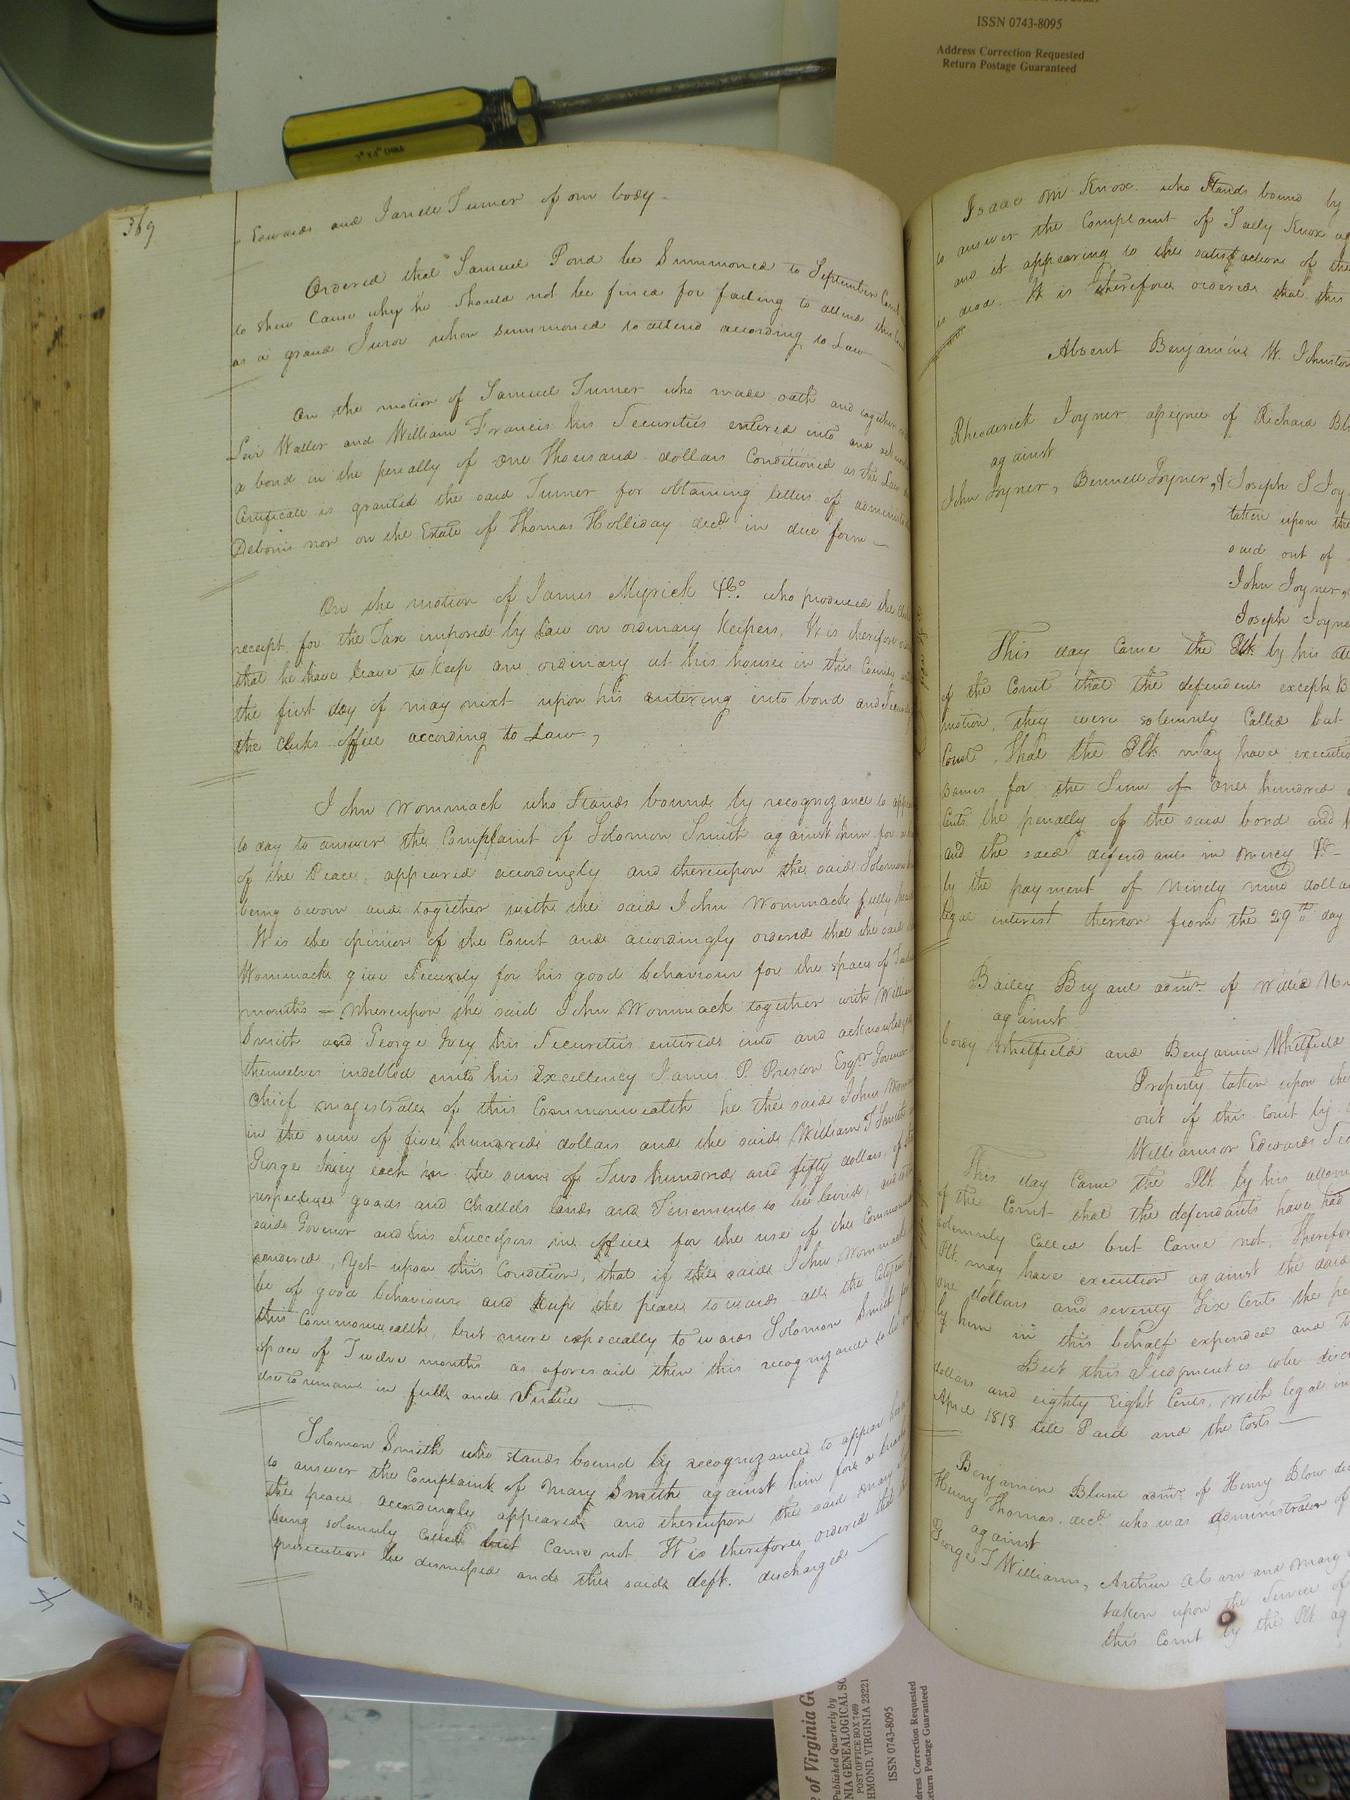 ISSN 0743-8095
Address Correction Requested
Return Postage Guaranteed
369
Edwards and Turner from body
Ordered that Samuel Pond be Summoned to September Court
to shew Cause why he should not be fined for failing to attend this
as a grand Juror when summoned to attend according to Law
On the motion of Samuel Turner who made oath and together
Levi Waller and William Francis his Securities entered into and
a bond in the penalty of One Thousand dollars Conditioned as the Law
Certificate is granted the said Turner for obtaining letters of
Debonis non on the Estate of Thomas Holliday decd in due form
On the motion of James Myrick &Co. who produced the
receipt for the Tax imposed by Law on ordinary Keepers, It is therefore
that he have leave to keep an ordinary at his house in this County
the first day of may next upon his entering into bond and
the Clerks office according to Law,
John Wommack who Stands bound by recognizance to
to day to answer the Complaint of Solomon Smith against him for
of the Peace, appeared accordingly and thereupon the said Solomon
being sworn and together with the said John Wommack fully
It is the opinion of the Court and accordingly ordered that the said
Wommack give Security for his good behaviour for the space of
months — Whereupon the said John Wommack together with William
Smith and George Ivey his Securities entered into and
themselves indebted unto his Excellency James P. Preston Esqr Govenor
Chief magistrate of this Commonwealth he the said John
in the sum of five hundred dollars and the said William T Smith
George Ivey each in the sum of Two hundred and fifty dollars, of
respective goods and Chattels lands and Tenements to be levied, and
said Govenor and his Successors in office for the use of the
rendered, Yet upon this Condition, that if the said John Wommack
be of good behaviour and keep the peace towards all the Citizens
this Commonwealth, but more especially towards Solomon Smith for
space of Twelve months as aforesaid then this recognizance to be
else to remain in full and Virtue
Solomon Smith who stands bound by recognizance to appear
to answer the Complaint of Mary Smith against him for a breach
the peace accordingly appeared and thereupon the said Mary
being solemnly called but came not. It is therefore ordered that
prosecution be dismissed and the said deft. discharged
Isaac M Knox who Stands bound by
to answer the Complaint of Sally Knox
and it appearing to the satisfaction of the
is dead. It is therefore ordered that this
Absent Benjamin W. Johnston
Rhoderick Joyner assignee of Richard
against
John Joyner, Bennett Joyner, & Joseph S
taken upon the
said out of
John Joyner,
Joseph Joyner
This day Came the Plt. by his
of the Court that the defendants except
motion, they were solemnly Called but
Court, That the Plt. may have execution
for the Sum of One hundred
Cents the penalty of the said bond and
and the said defendants in mercy &c
by the payment of Ninety nine
legal interest thereon from the 29th day
Bailey Bryant admr. of Willie
against
Cordy Whitfield and Benjamin Whitfield
Property taken upon
out of this court by
Williamson Edwards
This day Came the Plt by his
of the Court that the defendants have had
solemnly Called but Came not, Therefore
Plt. may have execution against the said
one dollars and seventy Six Cents the
by him in this behalf expended and
But this Judgment is to be
dollars and eighty Eight Cents, with legal
April 1818 till Paid and the Costs
Benjamin Blunt admr. of Henry Blow
Henry Thomas decd. who was administrator of
against
George T Williams, Arthur and Mary
taken upon the Service of
this Court by the Plt
of Virginia
Published Quarterly by
NIA GENEALOGICAL SO
POST OFFICE BOX 7469
HMOND, VIRGINIA 23221
ISSN 0743-8095
dress Correction Requested
eturn Postage Guaranteed